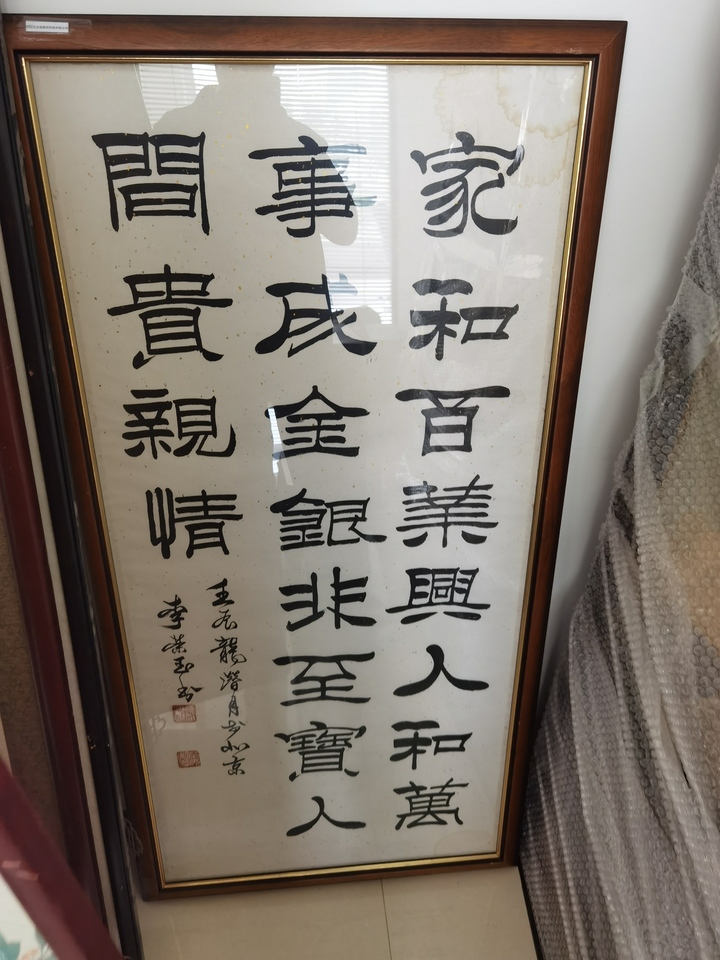 家和百業興人和萬
事成金銀非至寶人
間貴親情
壬辰龍潛月書於北京
李榮玉書